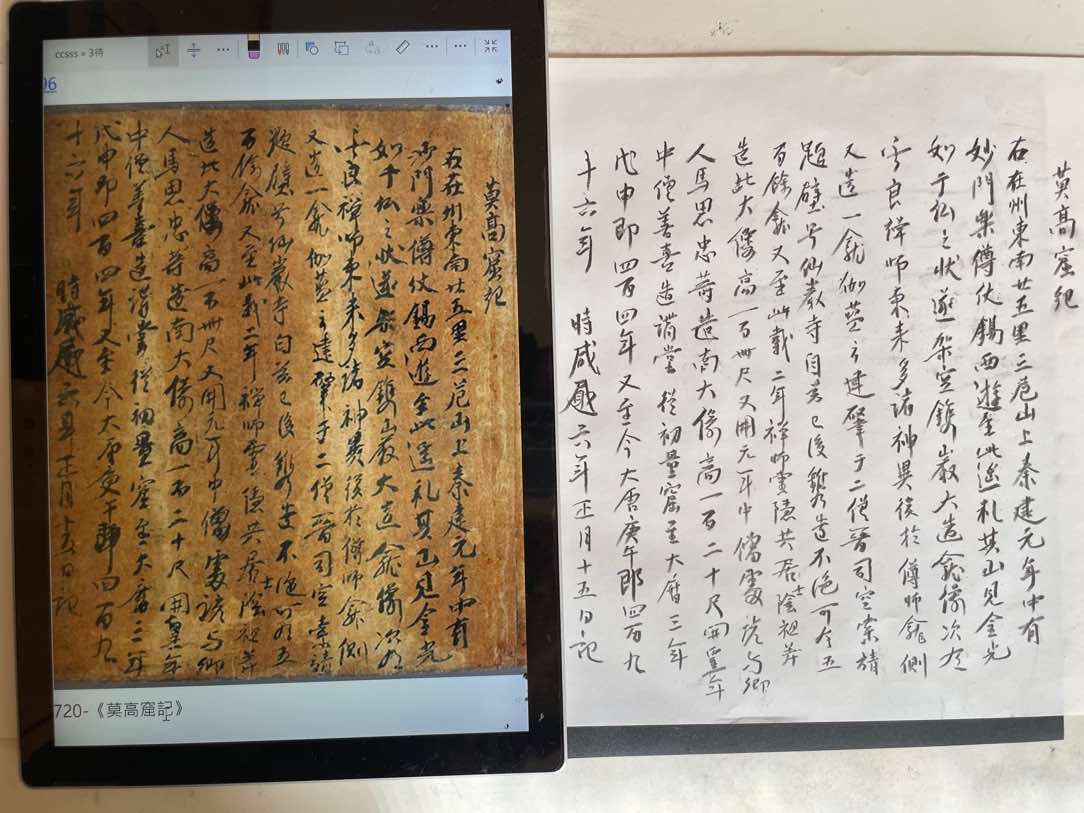 ccsss » 3待
96
莫高窟記
右在州東南廿五里三危山上秦建元年中有
沙門樂僔仗錫西遊至此遙礼其山見金光
如千仏之狀遂架空鐫山巖大造龕像次有
法良禪師東來多諸神異復於僔師龕側
又造一龕伽藍之建肇于二僧晉司空索靖
題壁号仙巖寺自茲已後鐫造不絶可有五
百餘龕又至延載二年禪師靈隱共居士陰祖等
造北大像高一百卌尺又開元年中僧處諺与鄉
人馬思忠等造南大像高一百二十尺開皇年
中僧善喜造講堂從初置窟至大曆三年
戊申即四百四年又至今大唐庚午即四百九
十六年 時咸通六年正月十五日記
720-《莫高窟記》
莫高窟記
右在州東南廿五里三危山上秦建元年中有
妙門樂僔仗錫西遊至此遙礼其山見金光
如千仏之狀遂架空鐫巖大造龕像次有
法良禪師東來多諸神異復於僔師龕側
又造一龕伽藍之建肇于二僧晉司空索靖
題壁号仙巖寺自茲已後鐫造不絶可有五
百餘龕又至延載二年禪師靈隱共居士陰祖等
造北大像高一百卌尺又開元年中僧處諺与鄉
人馬思忠等造南大像高一百二十尺開皇年
中僧善喜造講堂從初置窟至大曆三年
戊申即四百四年又至今大唐庚午郎四百九
十六年 時咸通六年正月十五日記